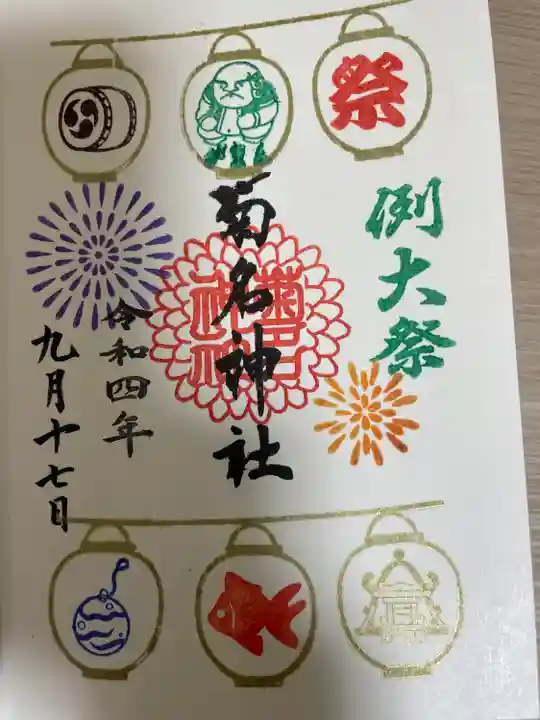 祭
例大祭
菊名神社
菊名
神社
令和四年
九月十七日